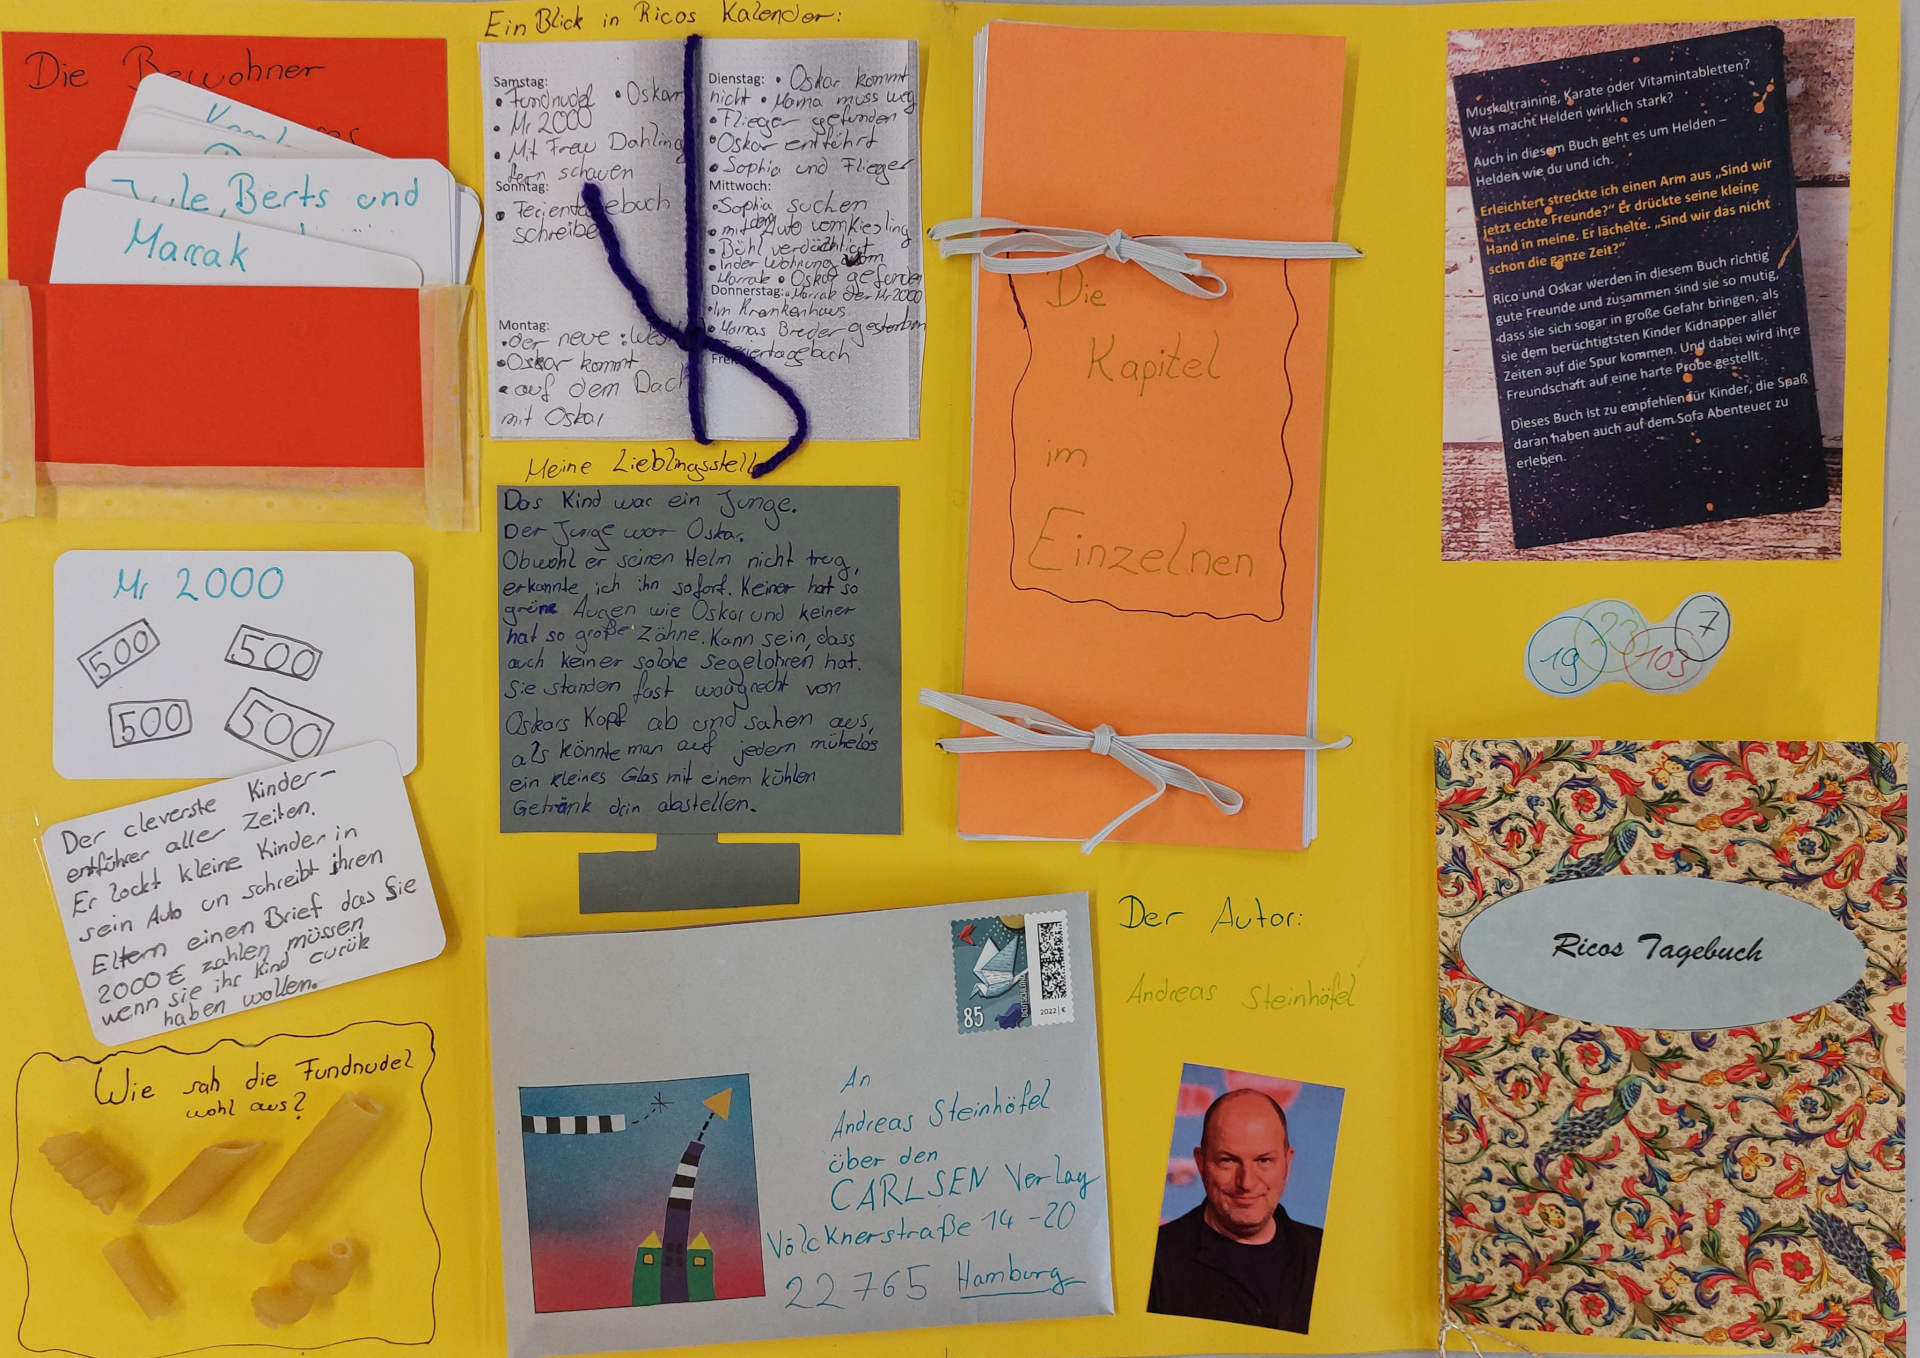 Die Bewohner
Jule, Berts und
Marrak
Mr 2000
500
500
500
500
Der cleverste Kinder-
entführer aller Zeiten.
Er lockt kleine Kinder in
sein Auto un schreibt ihren
Eltern einen Brief das sie
2000 € zahlen müssen
wenn sie ihr Kind curük
haben wollen.
Wie sah die Fundnudel
wohl aus?
Ein Blick in Ricos Kalender:
Samstag:
• Fundnudel • Oskar
• Mr 2000
• Mit Frau Dahling
fern schauen
Sonntag:
• Ferientagebuch
schreiben
Montag:
• der neue
• Oskar kommt
• auf dem Dach
mit Oskar
Dienstag: • Oskar kommt
nicht • Mama muss weg
• Flieger gefunden
• Oskar entführt
• Sophia und Flieger
Mittwoch:
• Sophia suchen
• mit dem Auto vom Kiesling
• Bühl verdächtigt
• in der Wohnung vom
Marrak • Oskar gefunden
Donnerstag: • Marrak der Mr 2000
• Im Krankenhaus
• Mamas Breder gestorben
Ferientagebuch
Meine Lieblingsstelle
Das Kind war ein Junge.
Der Junge war Oskar.
Obwohl er seinen Helm nicht trug,
erkannte ich ihn sofort. Keiner hat so
grüne Augen wie Oskar und keiner
hat so große Zähne. Kann sein, dass
auch keiner solche Segelohren hat.
Sie standen fast waagrecht von
Oskars Kopf ab und sahen aus,
als könnte man auf jedem mühelos
ein kleines Glas mit einem kühlen
Getränk drin abstellen.
Die
Kapitel
im
Einzelnen
85
DEUTSCHLAND
2022 | €
An
Andreas Steinhöfel
über den
CARLSEN Verlag
Völcknerstraße 14-20
22765 Hamburg
Der Autor:
Andreas Steinhöfel
Muskeltraining, Karate oder Vitamintabletten?
Was macht Helden wirklich stark?
Auch in diesem Buch geht es um Helden –
Helden wie du und ich.
Erleichtert streckte ich einen Arm aus „Sind wir
jetzt echte Freunde?“ Er drückte seine kleine
Hand in meine. Er lächelte. „Sind wir das nicht
schon die ganze Zeit?“
Rico und Oskar werden in diesem Buch richtig
gute Freunde und zusammen sind sie so mutig,
dass sie sich sogar in große Gefahr bringen, als
sie dem berüchtigtsten Kinder Kidnapper aller
Zeiten auf die Spur kommen. Und dabei wird ihre
Freundschaft auf eine harte Probe gestellt.
Dieses Buch ist zu empfehlen für Kinder, die Spaß
daran haben auch auf dem Sofa Abenteuer zu
erleben.
19 23 103 7
Ricos Tagebuch